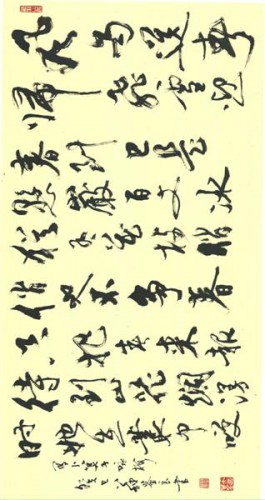 风雨送春
归飞雪迎
春到已是
悬崖百丈冰
犹有花枝俏
俏也不争春
只把春来报
待到山花烂漫
时她在丛中笑